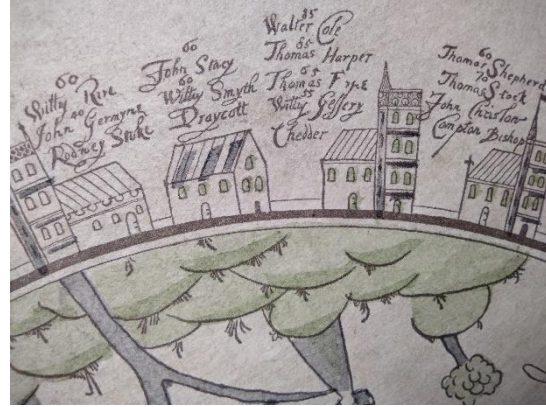 60
Witty Rere
40
John Germyne
Rodney Stoke
60
John Stacy
60
Witty Smyth
Draycott
85
Walter Cole
65
Thomas Harper
65
Thomas
55
Witty Geffery
Chedder
60
Thomas Shepherd
70
Thomas Stock
John Christon
Compton Bishop